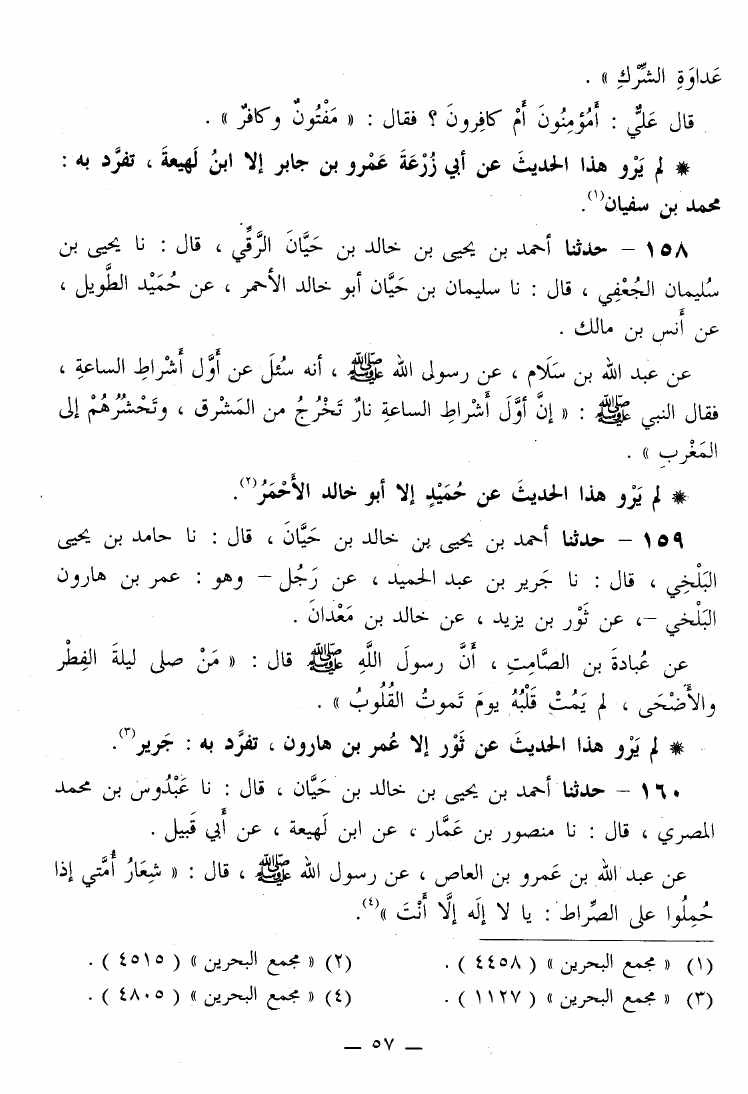 عَداوَةِ الشِّرْكِ » .
قال عَليٌّ : أَمُؤمِنُونَ أَمْ كافِرونَ ؟ فقال : « مَفْتُونٌ وكافرٌ » .
* لم يَرْو هذا الحديثَ عن أبي زُرْعَةَ عَمْرو بن جابر إلا ابنُ لَهيعةَ ، تفرَّد به :
محمد بن سفيان(١).
١٥٨ – حدثنا أحمد بن يحيى بن خالد بن حَيَّانَ الرَّقِّي ، قال : نا يحيى بن
سُليمان الجُعْفِي ، قال : نا سليمان بن حَيَّان أبو خالد الأحمر ، عن حُمَيْد الطَّويل ،
عن أَنس بن مالك .
عن عبد الله بن سَلَام ، عن رسولى الله ﷺ ، أنه سُئلَ عن أوَّل أَشْراطِ الساعةِ ،
فقال النبي ﷺ : « إنَّ أوَّلَ أَشْراطِ الساعةِ نارٌ تَخْرُجُ من المَشْرق ، وتَحْشُرُهُمْ إلى
المَغْربِ » .
* لم يَرْو هذا الحديثَ عن حُمَيْدٍ إلا أبو خالد الأَحْمَرُ(٢).
١٥٩ – حدثنا أحمد بن يحيى بن خالد بن حَيَّانَ ، قال : نا حامد بن يحيى
البَلْخِي ، قال : نا جَرير بن عبد الحميد ، عن رَجُل – وهو : عمر بن هارون
البَلْخي –، عن ثَوْر بن يزيد ، عن خالد بن مَعْدانَ .
عن عُبادةَ بن الصَّامِتِ ، أَنَّ رسولَ اللَّهِ ﷺ قال : « مَنْ صلى ليلةَ الفِطْر
والأَضْحَى ، لم يَمُتْ قَلْبُهُ يومَ تَموتُ القُلُوبُ » .
* لم يَرْو هذا الحديثَ عن ثَوْر إلا عُمر بن هارون ، تفرَّد به : جَرير(٣).
١٦٠ – حدثنا أحمد بن يحيى بن خالد بن حَيَّان ، قال : نا عَبْدُوس بن محمد
المصري ، قال : نا منصور بن عَمَّار ، عن ابن لَهيعة ، عن أَبي قَبيل .
عن عبد الله بن عَمرو بن العاص ، عن رسول الله ﷺ ، قال : « شِعَارُ أُمَّتي إذا
حُمِلُوا على الصِّراط : يا لا إلَه إلَّا أَنْتَ »(٤).
(١) « مجمع البحرين » ( ٤٤٥٨ ) . (٢) « مجمع البحرين » ( ٤٥١٥ ) .
(٣) « مجمع البحرين » ( ١١٢٧ ) . (٤) « مجمع البحرين » ( ٤٨٠٥ ) .
– ٥٧ –